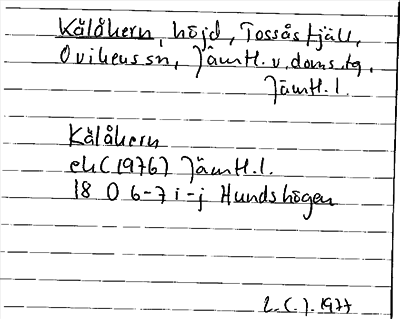 Kålåhern, höjd, Tossåsfjäll,
Ovikens sn, Jämtl. v. doms. tg,
Jämtl. l.
Kålåhern
ek (1976) Jämtl. l.
18 O 6-7 i-j Hundshögen
1977